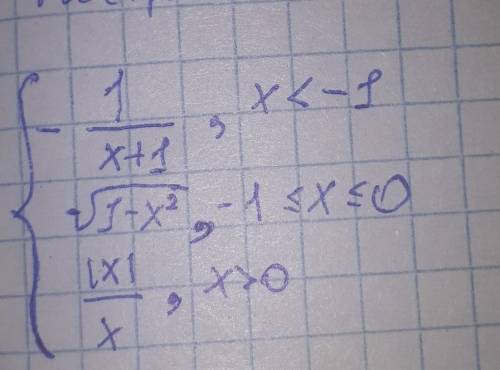 - 1/(x+1), x < -1
√(1-x²), -1 ≤ x ≤ 0
|x|/x, x > 0